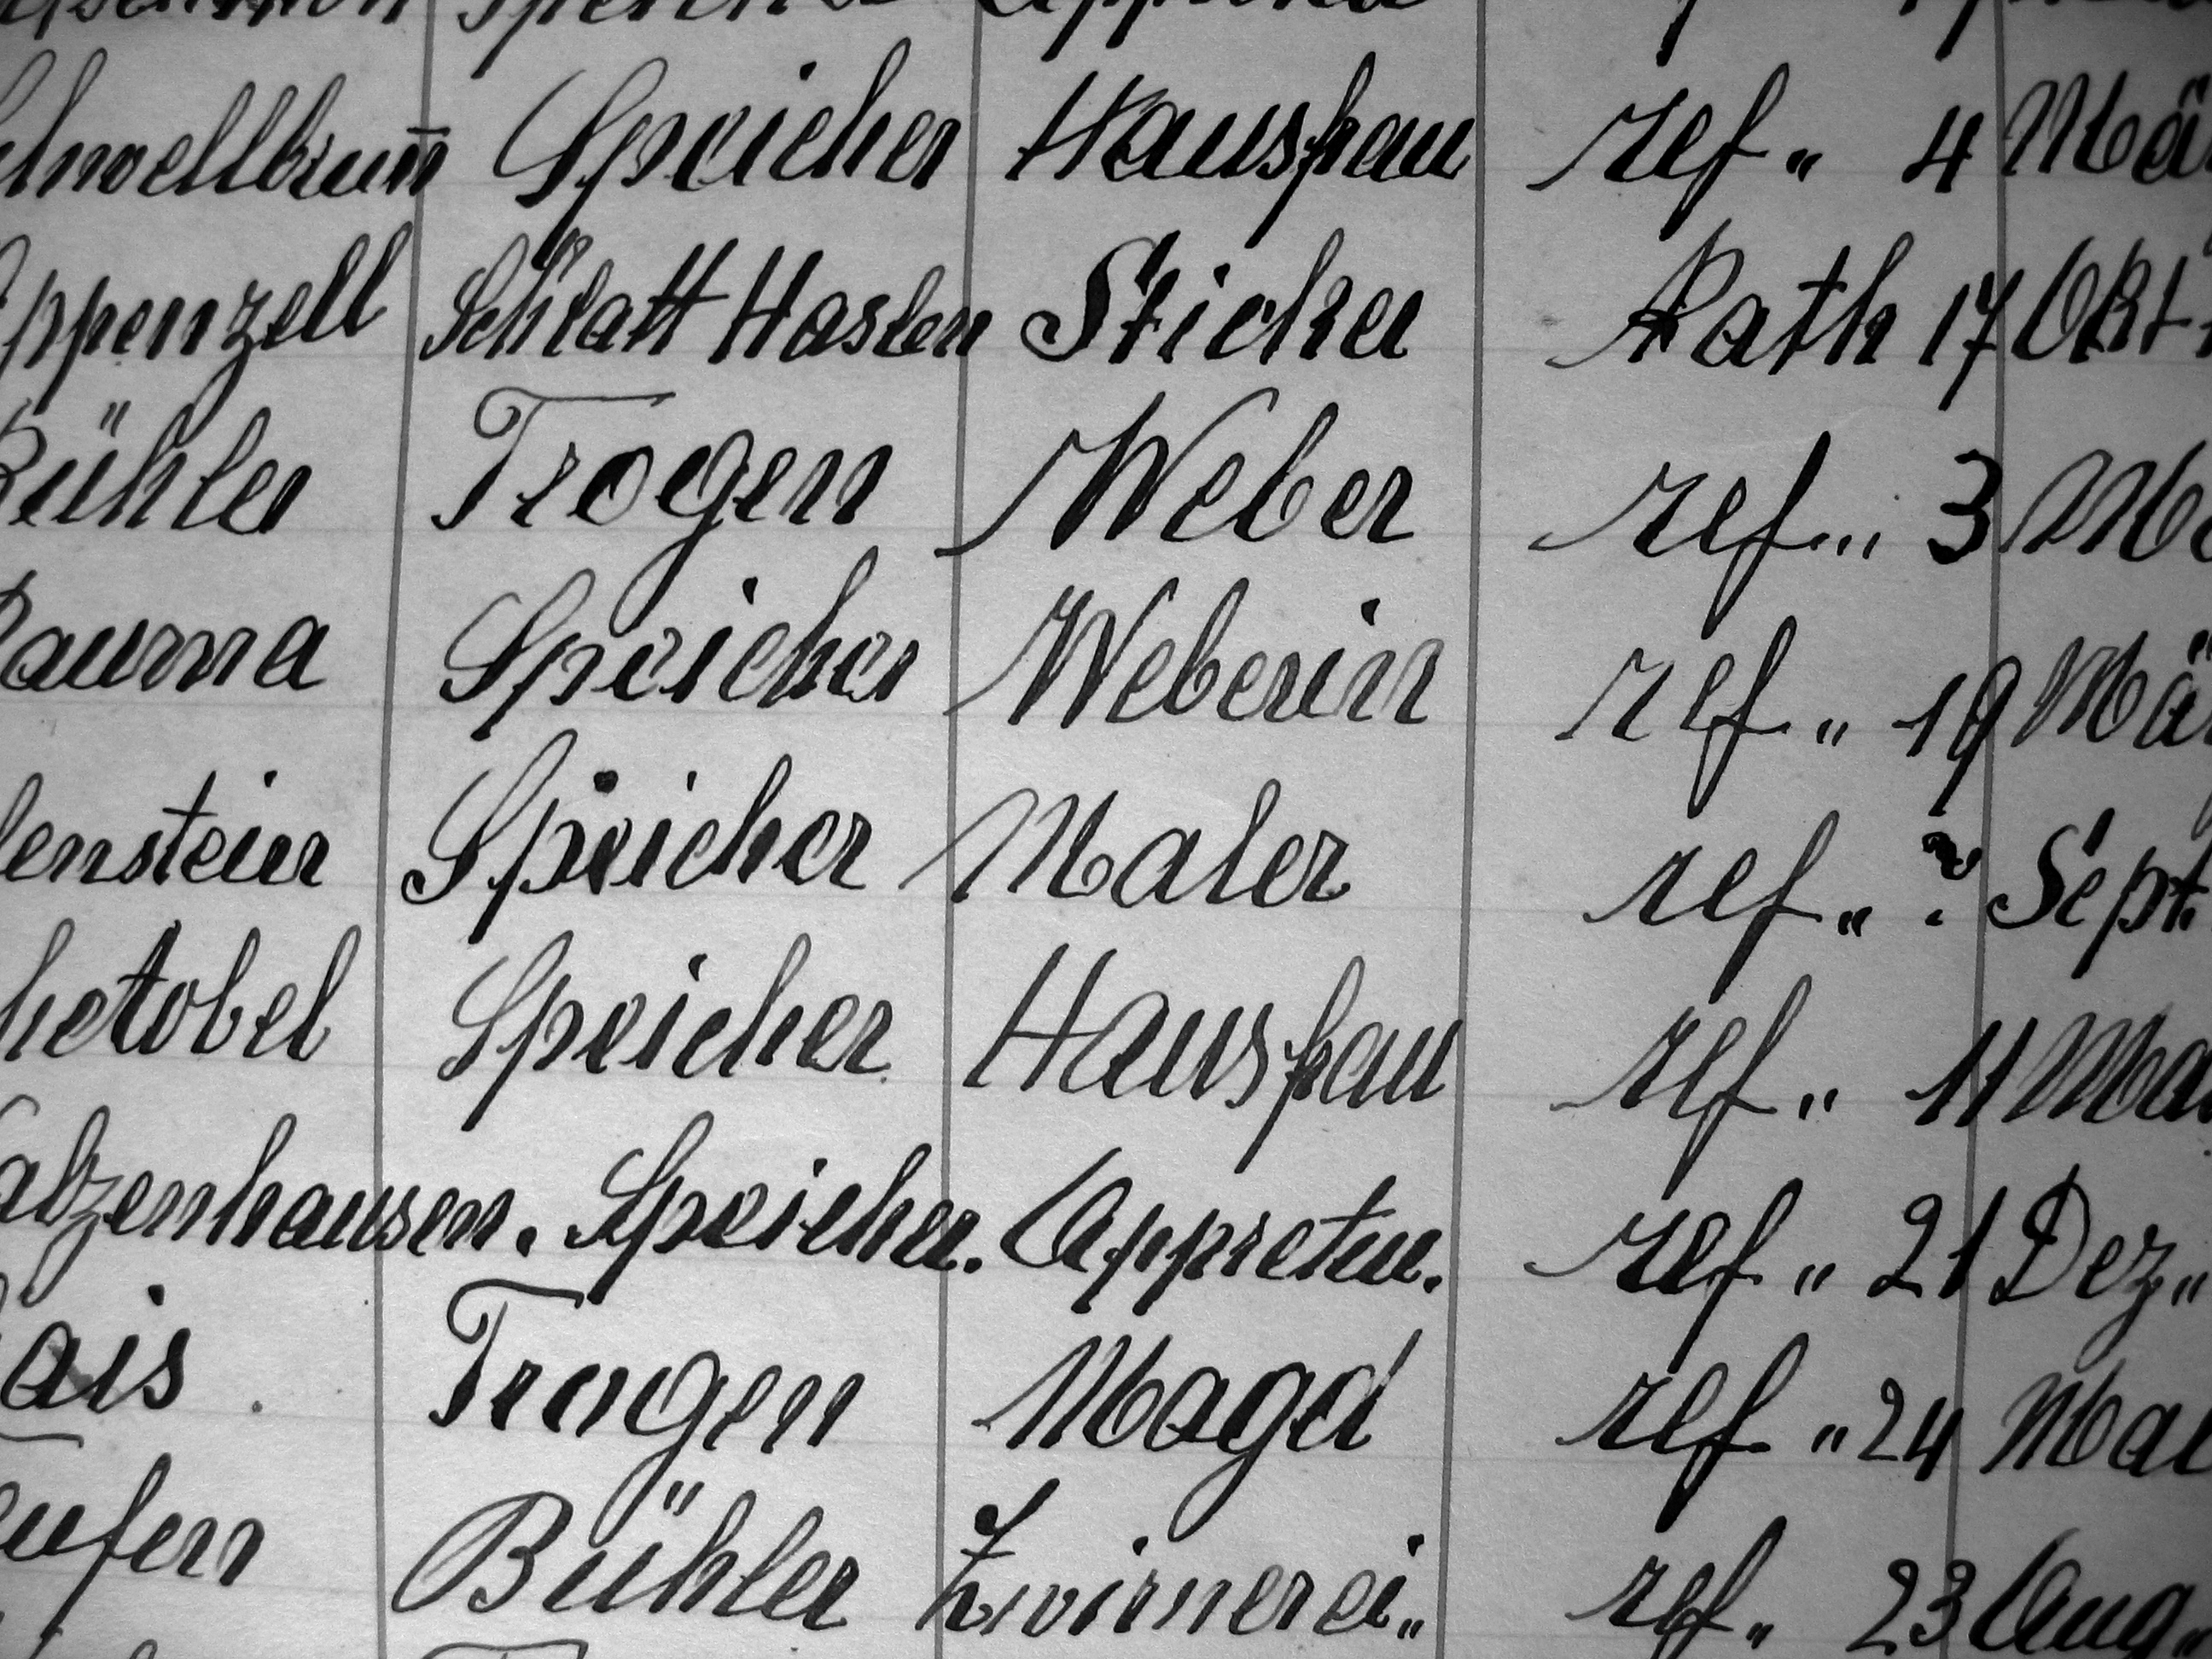 chwellbrunn Speicher Hausfrau ref „ 4 Mä
ppenzell Schlatt Haslen Sticker Kath 17 Okt
Bühler Trogen Weber ref „ 3
Bauma Speicher Weberin ref „ 19 Mä
lenstein Speicher Maler ref „ ? Sept.
hetobel Speicher Hausfrau ref „ 11 Ma
alzenhausen. Speicher. Appretur. ref „ 21 Dez „
ais Trogen Magd ref „ 24 Mai
eufen Bühler Zwirnerei „ ref „ 23 Aug „